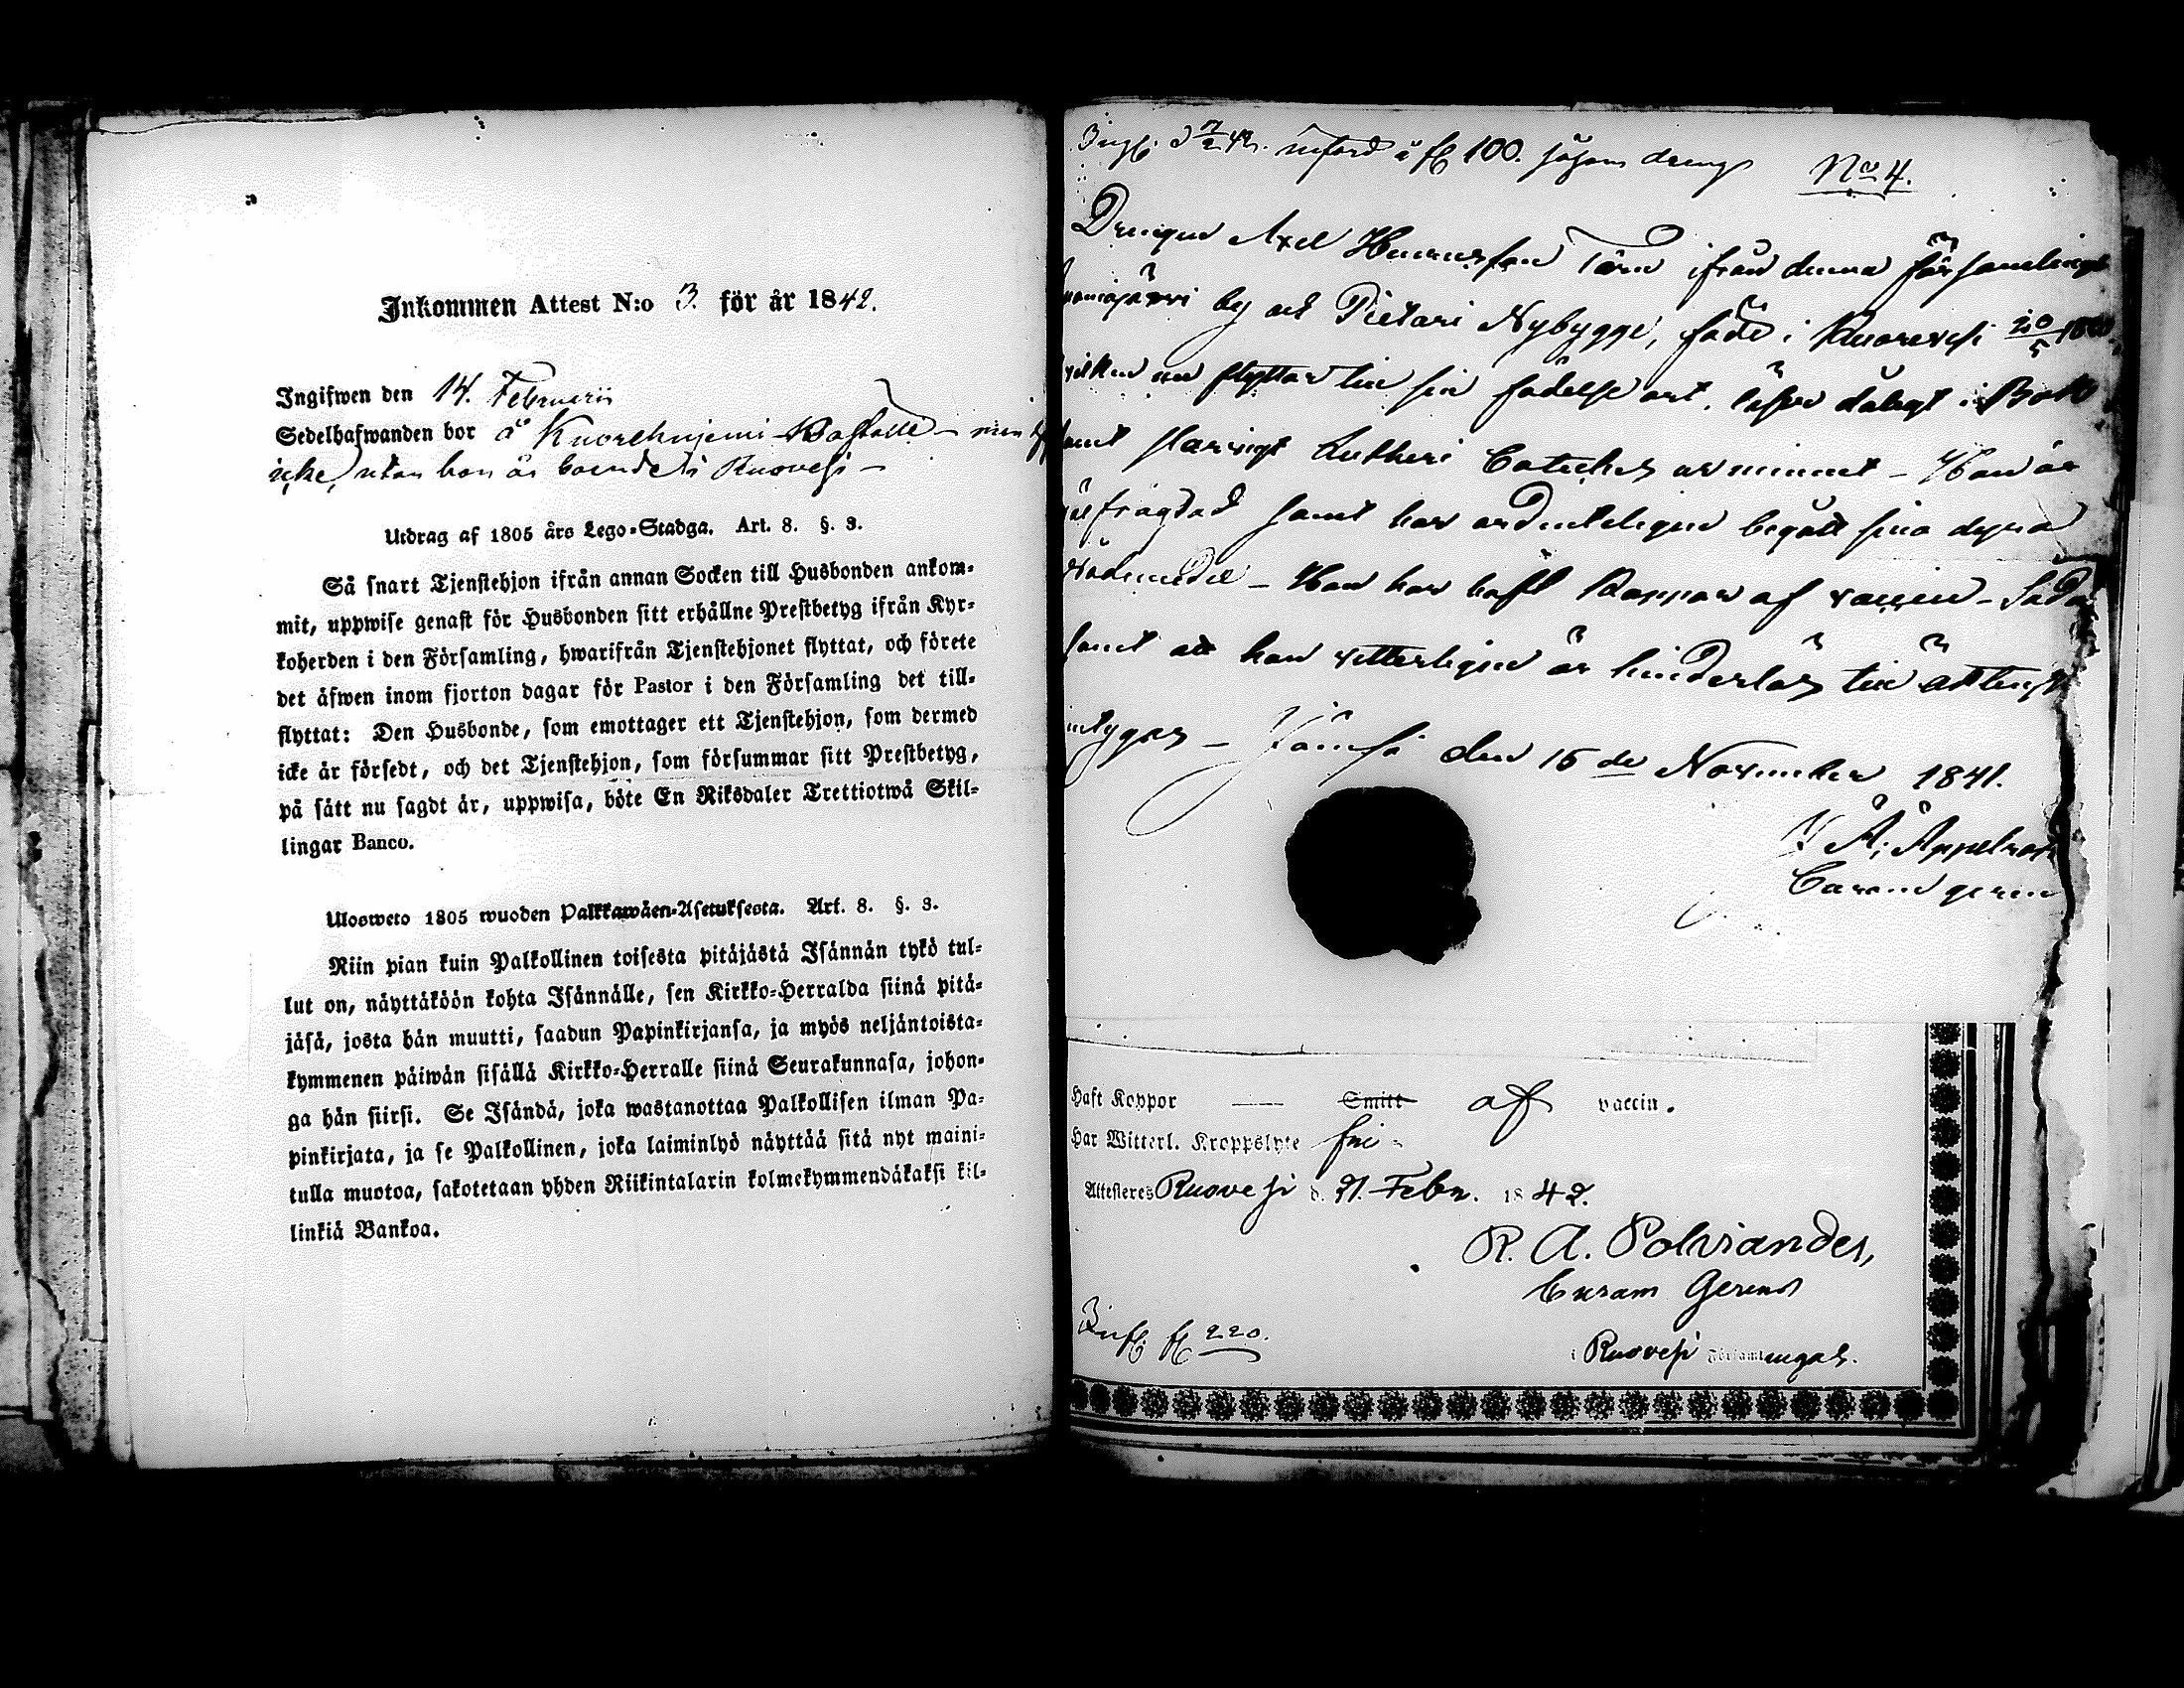 Inkommen Attest N:o 3. för år 1842.
Ingifwen den 14. Februarii
Sedelhafwanden bor å Knorehnjemi Boställe – men
icke, utan han är boende i Ruovesi –
Utdrag af 1805 års Lego-Stadga. Art. 8. §. 3.
Så snart Tjenstehjon ifrån annan Socken till Husbonden ankom-
mit, uppwise genast för Husbonden sitt erhållne Prestbetyg ifrån Kyr-
koherden i den Församling, hwarifrån Tjenstehjonet flyttat, och förete
det äfwen inom fjorton dagar för Pastor i den Församling det till-
flyttat: Den Husbonde, som emottager ett Tjenstehjon, som dermed
icke är försedt, och det Tjenstehjon, som försummar sitt Prestbetyg,
på sätt nu sagdt är, uppwisa, böte En Riksdaler Trettiotwå Skil-
lingar Banco.
Ulosweto 1805 wuoden Palkkawäen-Asetuksesta. Art. 8. §. 3.
Niin pian kuin Palkollinen toisesta pitäjästä Isännän tykö tul-
lut on, näyttäköön kohta Isännälle, sen Kirkko-Herralda siinä pitä-
jäsä, josta hän muutti, saadun Papinkirjansa, ja myös neljäntoista-
kymmenen päiwän sisällä Kirkko-Herralle siinä Seurakunnasa, johon-
ga hän siirsi. Se Isändä, joka wastanottaa Palkollisen ilman Pa-
pinkirjata, ja se Palkollinen, joka laiminlyö näyttää sitä nyt maini-
tulla muotoa, sakotetaan yhden Riikintalarin kolmekymmendäkaksi kil-
linkiä Bankoa.
införd å 100. såsom dreng No 4.
Drengen Axel Törn ifrån denna församlings
by och Pietari Nybygge, född i Kuorevesi 20/5
nu flyttar till sin födelse ort, läser dåligt i Bok
samt Lutheri Catches ur minnet – Han är
frägdad samt har ordenteligen begått sina dyra
Nådemedel – Han har haft Koppor af vaccin –
samt att han vitterligen är hinderlös till
intygas – Jämsä den 15de November 1841.
Haft Koppor — Smitt af vaccin.
Har Witterl. Kroppslyte fri –
Attesteres Ruovesi d. 21. Febr. 1842.
R. A. Polviander,
Curam Gerens
220.
i Ruovesi Församlingat.